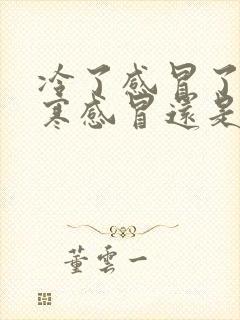 冷了感冒了
寒感冒還是
董雲一